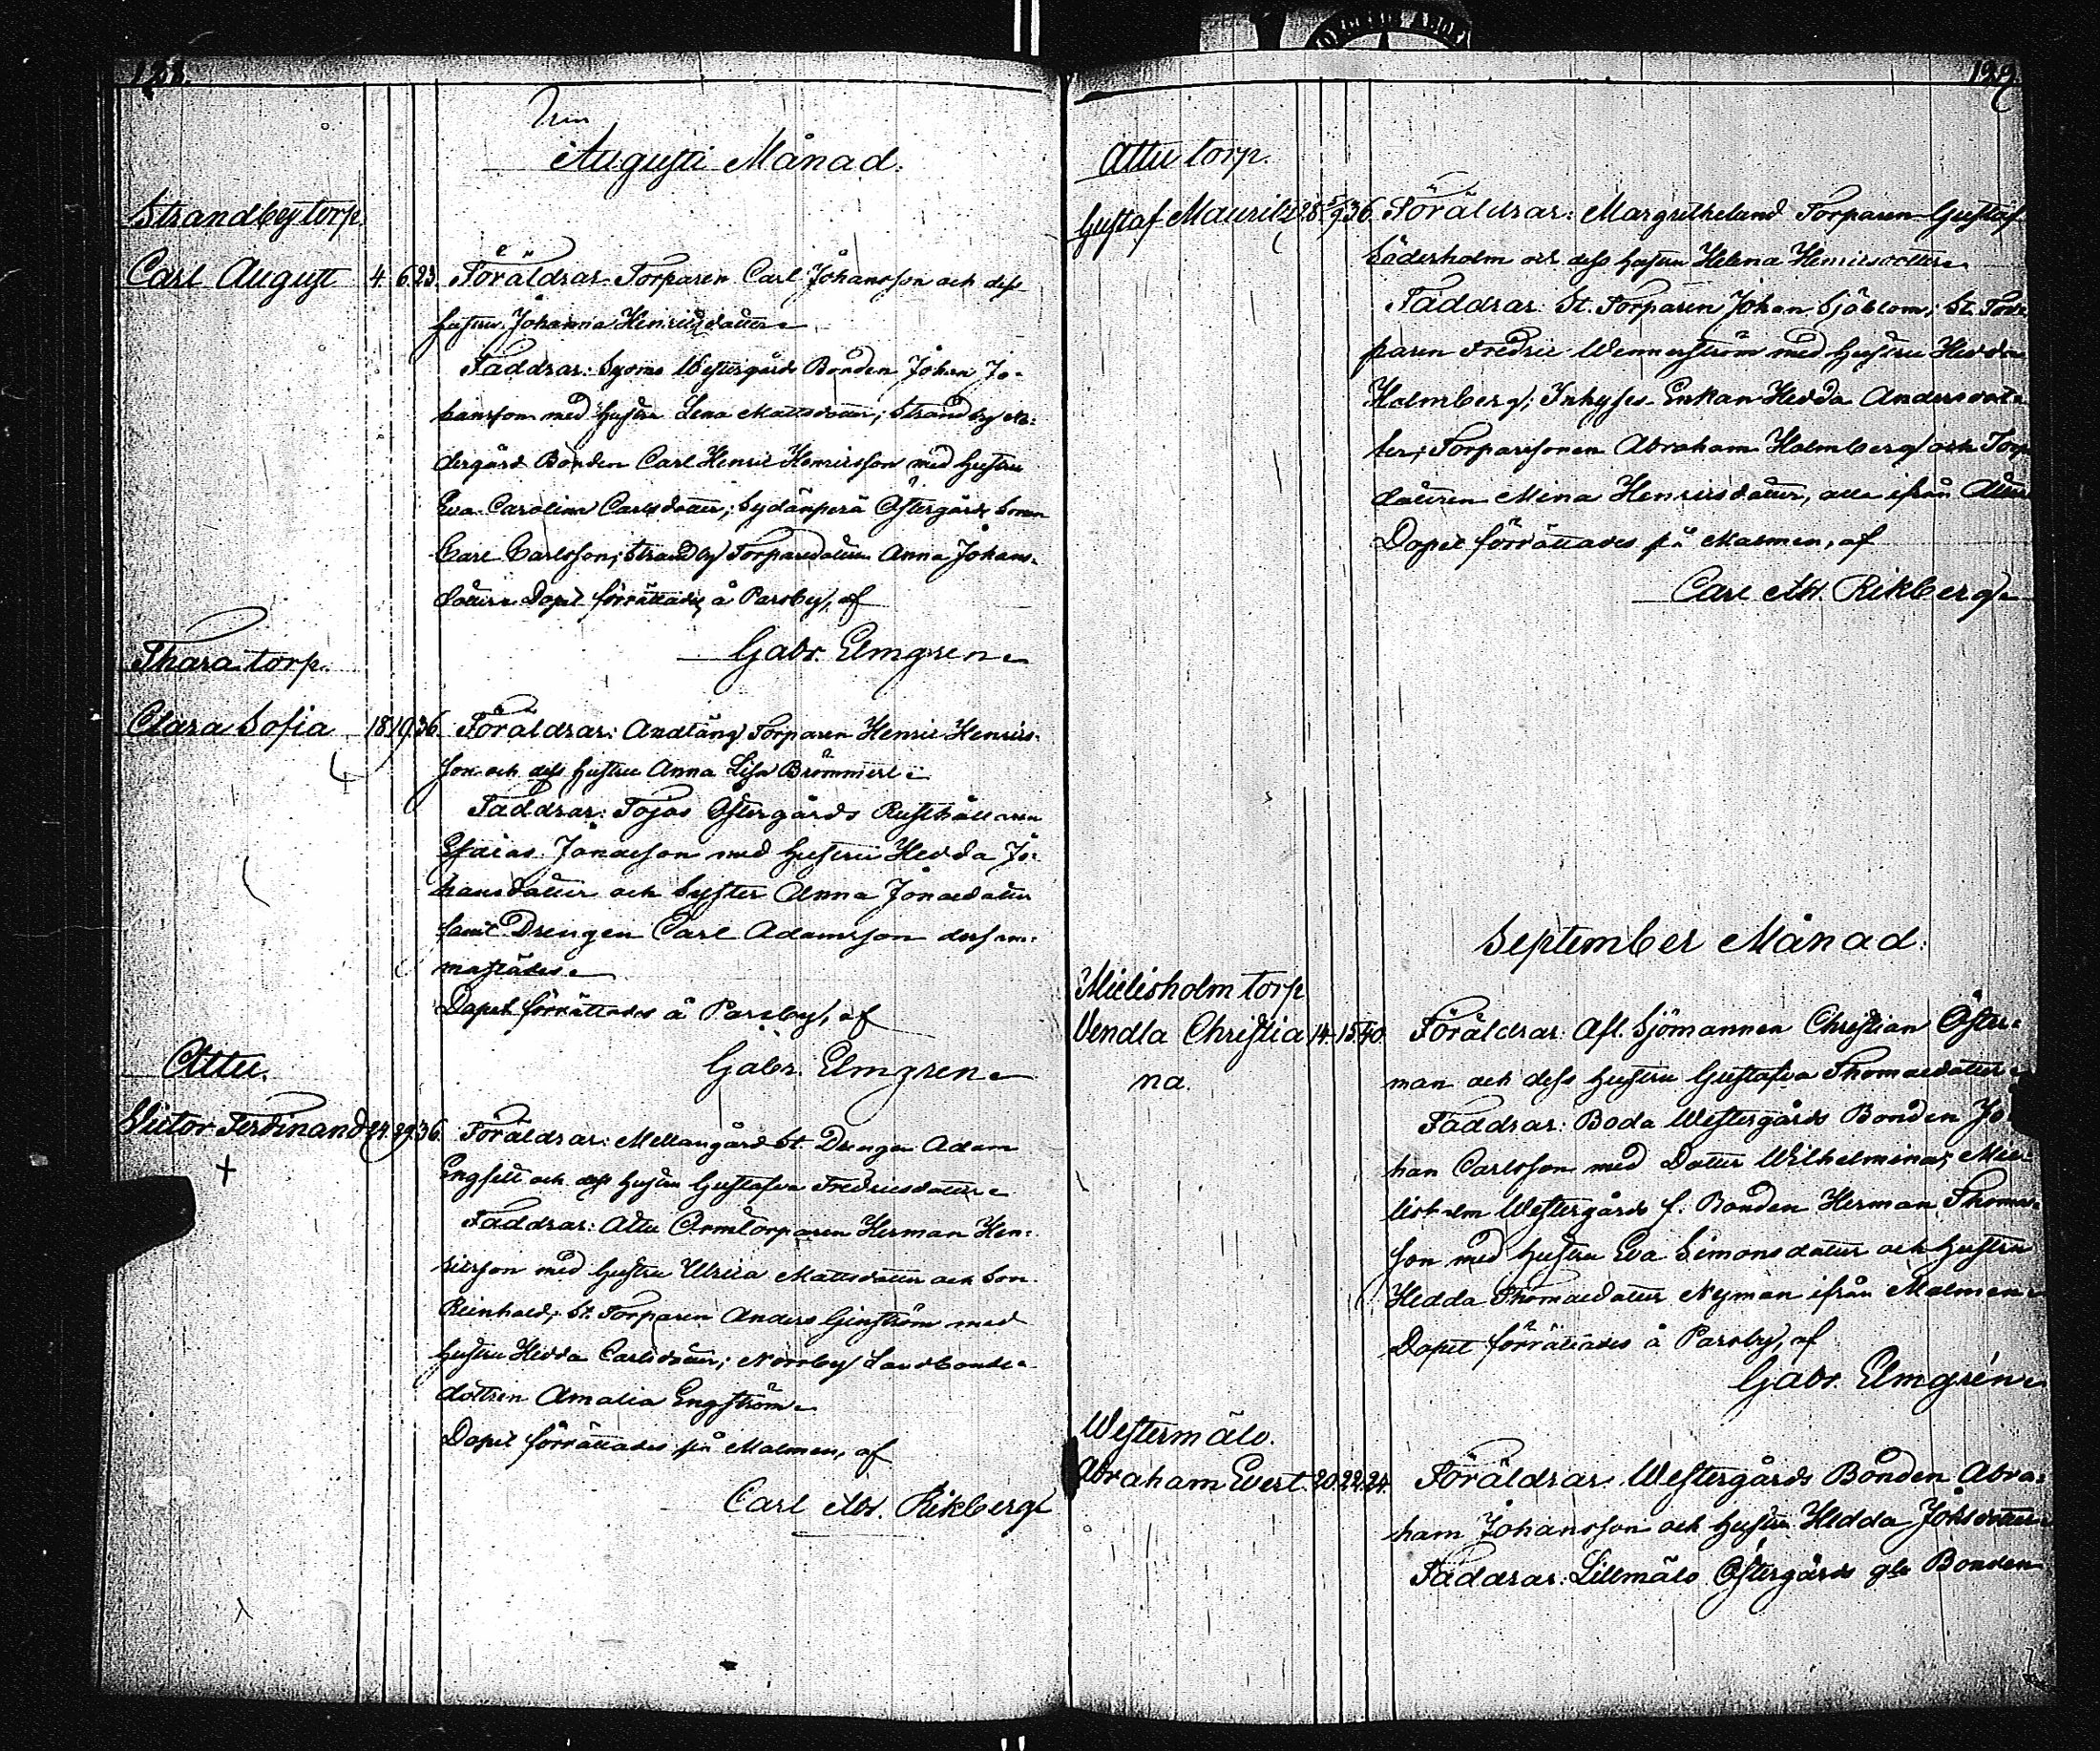 128.
Augusti Månad.
Strandby torp.
Carl August 4. 6. 23. Föräldrar: Torparen Carl Johansson och dess
hustru Johanna Henricsdotter
Faddrar: Sysmo Westergårds Bonden Johan Jo-
hansson med hustru Lena Mattsdotter; Strandby Ne-
dergård Bonden Carl Henric Henricsson med hustru
Eva Carolina Carlsdotter; Sydänperä Östergårds Sonen
Carl Carlsson; Strandby Torparedottren Anna Johans-
dotter. Dopet förrättades å Parsby, af
Gabr. Elmgren
Thara torp.
Clara Sofia 18. 19. 36. Föräldrar: Andtäng Torparen Henric Henrics-
son och dess hustru Anna Lisa Brömmerl
Faddrar: Tojas Östergårds Rusthållaren
Esaias Jönaesson med hustru Hedda Jo-
hansdotter och Syster Anna Jönaedotter
samt Drengen Carl Adamsson dersam-
mastädes.
Dopet förrättades å Parsby, af
Gabr. Elmgren
Attu.
Victor Ferdinand 24. 29. 36. Föräldrar: Mellangård St. Drengen Adam
Engfelt och dess hustru Gustafva Fredricsdotter
Faddrar: Attu Ormtorparen Herman Hen-
ricsson med hustru Ulrica Mattsdotter och Son
Reinhold; St. Torparen Anders Ginström med
hustru Hedda Carlsdotter; Norrby Landbonde-
dottren Amalia Engström
Dopet förrättades på Malmen, af
Carl Ab. Rikberg
129.
Attu torp.
Gustaf Mauritz 28. 5/9. 36. Föräldrar: Margretheland Torparen Gustaf
Söderholm och dess hustru Helena Henricsdotter
Faddrar: St. Torparen Johan Sjöblom; St. Tor-
paren Fredric Wennerström med hustru Hedda
Holmberg; Inhyses Enkan Hedda Andersdot-
ter; Torparsonen Abraham Holmberg och Torp
dottren Mina Henricsdotter, alla ifrån Attu
Dopet förrättades på Malmen, af
Carl Ab. Rikberg
September Månad.
Mielisholm torp
Vendla Christia 14. 15. 40. Föräldrar: Afl. Sjömannen Christian Öster-
na. man och dess hustru Gustafva Thomaedotter
Faddrar: Boda Westergårds Bonden Jo-
han Carlsson med Dotter Wilhelmina; Mie-
lisholm Westergårds f. Bonden Herman Thomas-
son med hustru Eva Simonsdotter och hustru
Hedda Thomaedotter Nyman ifrån Malmen
Dopet förrättades å Parsby, af
Gabr. Elmgrén
Westermälö.
Abraham Evert. 20. 22. 24. Föräldrar: Westergårds Bonden Abra-
ham Johansson och hustru Hedda Johsdotter
Faddrar: Lillmälö Östergårds gla Bonden